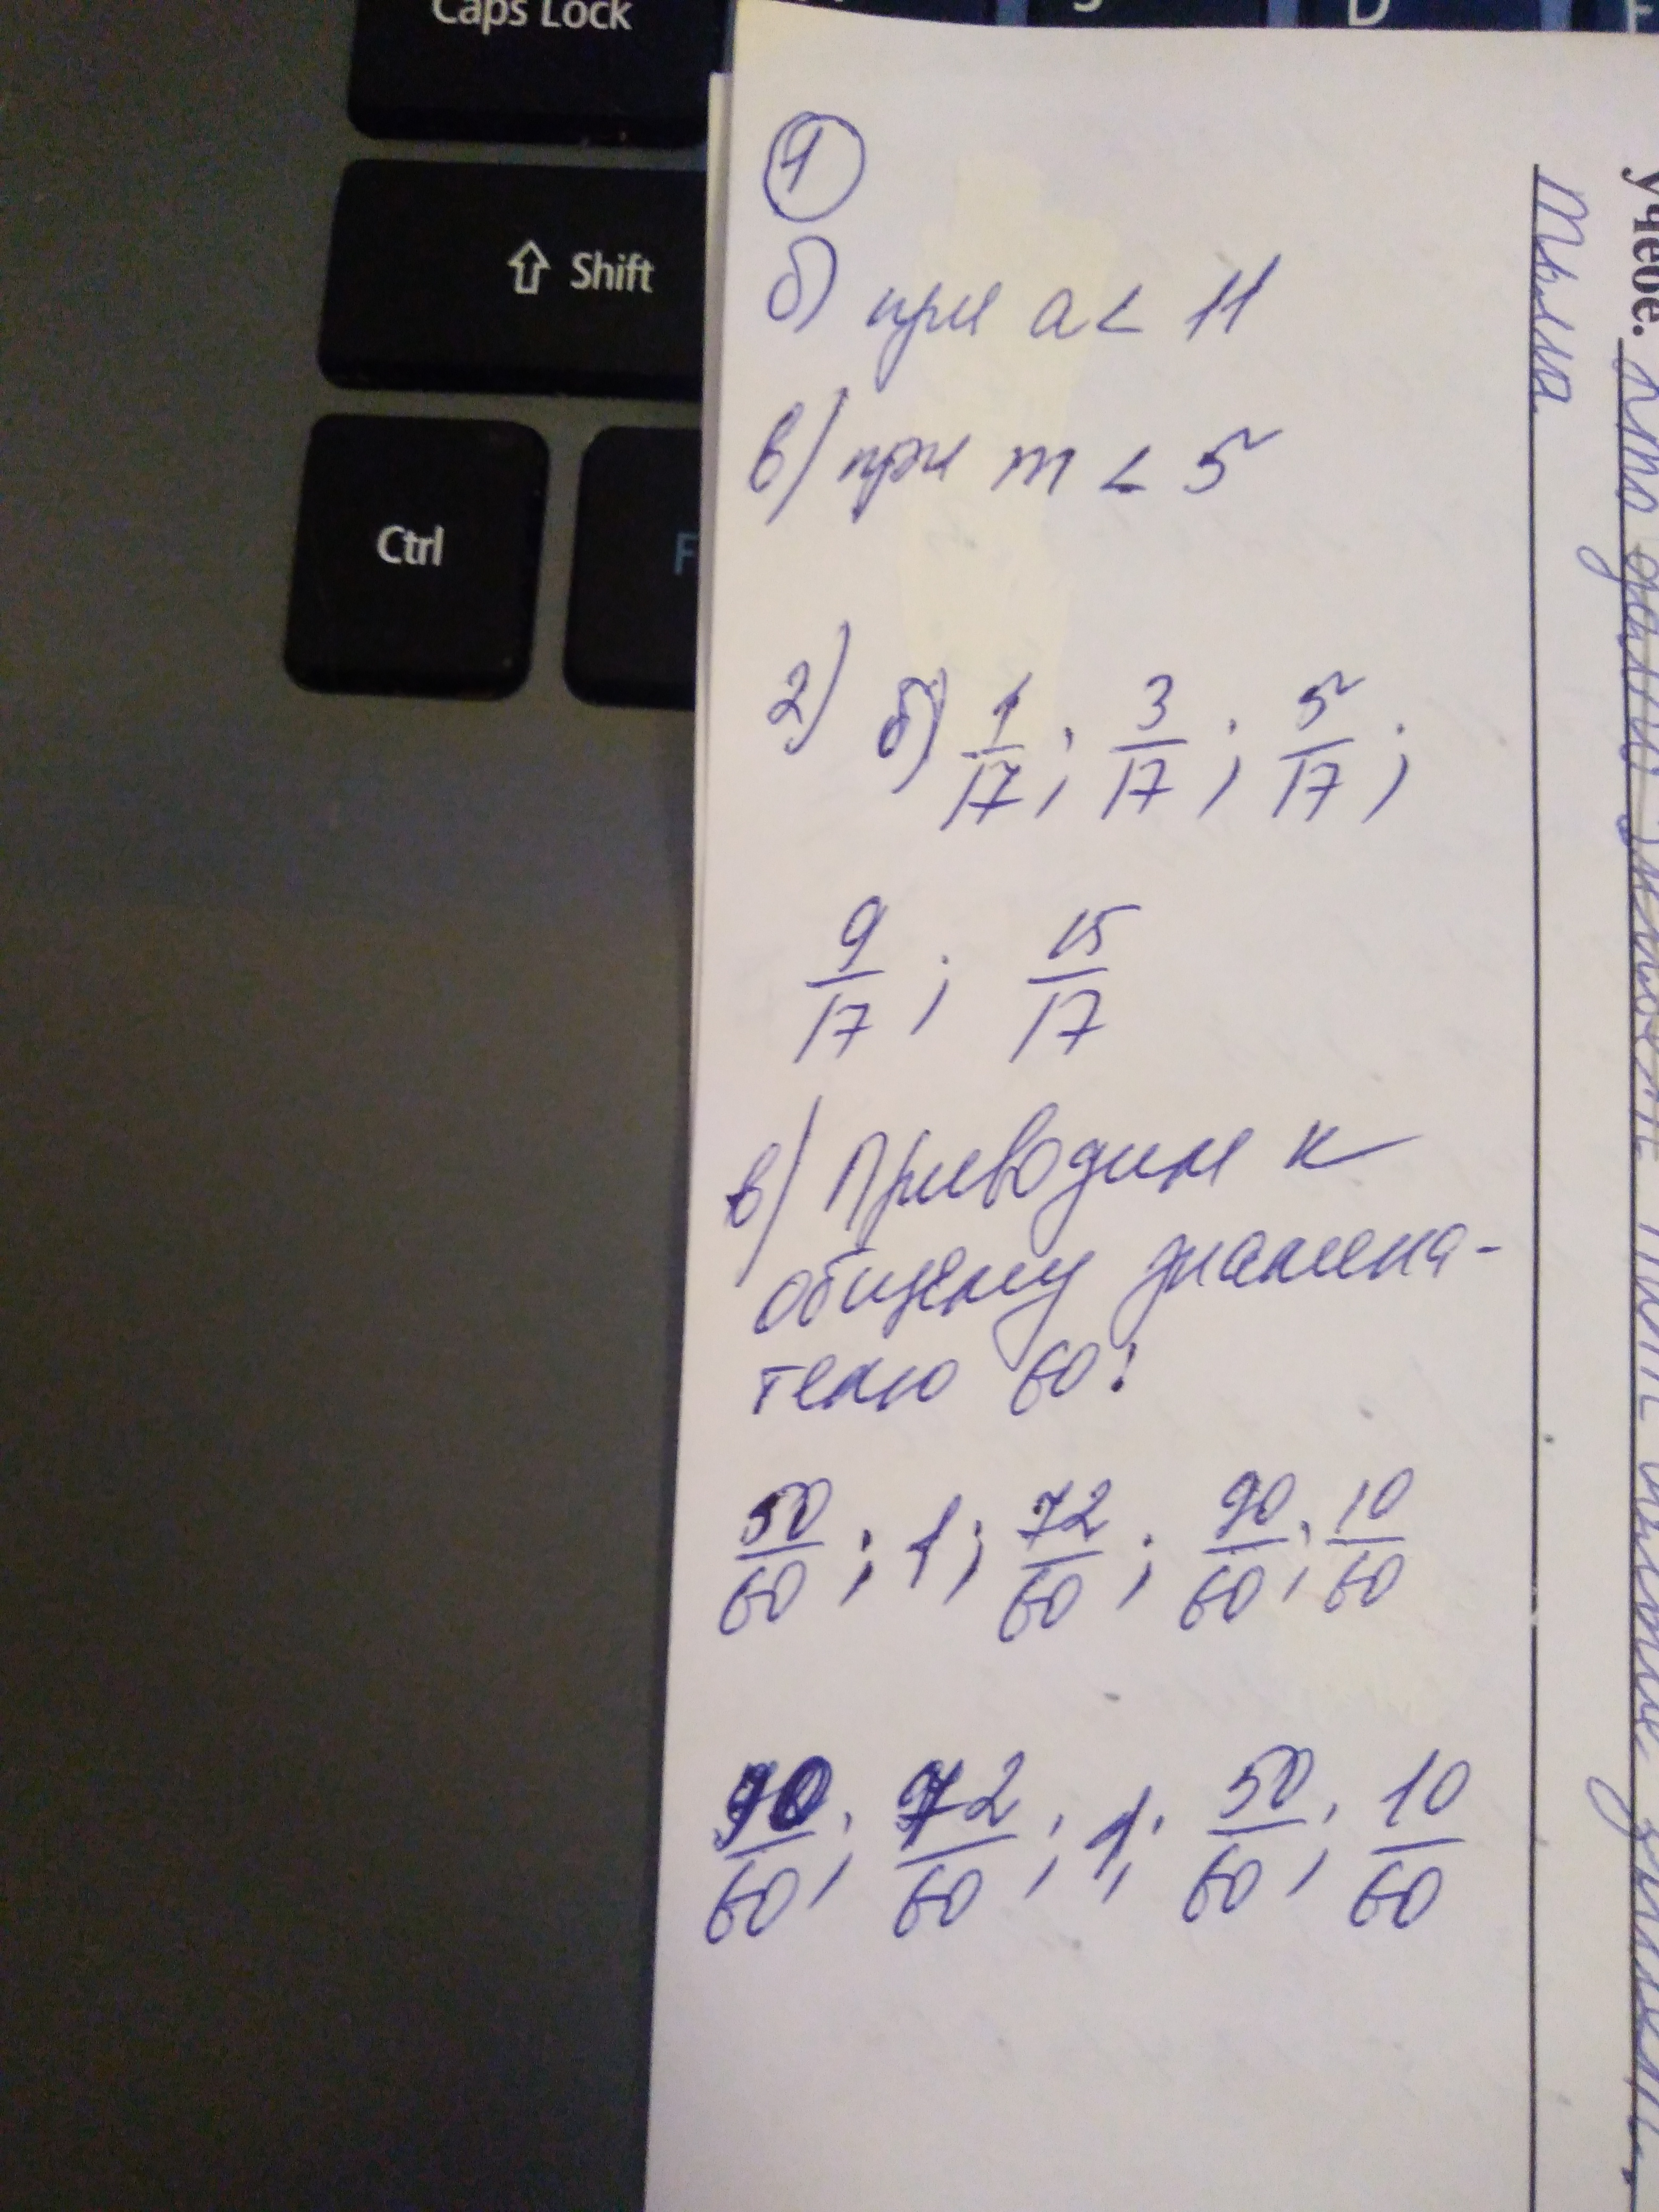 Caps Lock
D
F
Shift
Ctrl
F
1
б) при a < 11
в) при m < 5
2) б) 1/17 ; 3/17 ; 5/17 ;
9/17 ; 15/17
в) Приводим к
общему знамена-
телю 60:
50/60 ; 1 ; 72/60 ; 90/60 ; 10/60
90/60 ; 72/60 ; 1 ; 50/60 ; 10/60
учебе.